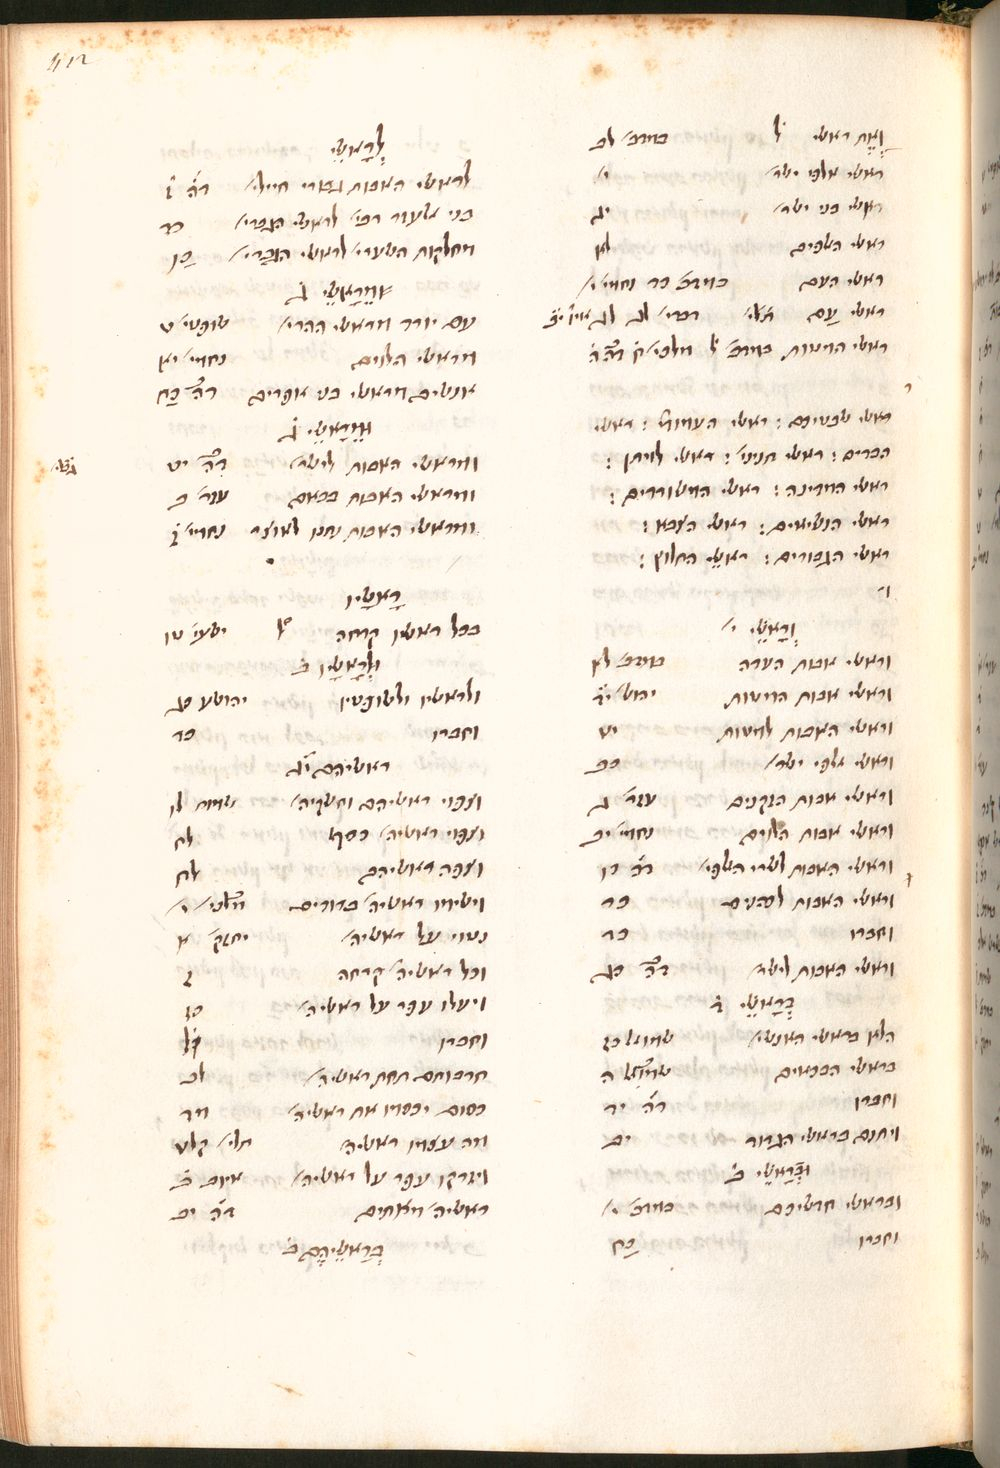 412
וְאֶת ראשי ל במדב׳ לב
ראשי אלפי ישר׳ י׳
ראשי בני ישר׳ יג
ראשי האלפים לא
ראשי העם במדב׳ כה נחמי׳ י׳
ראשי עַם
ראשי המטות במדב׳ ל
ראשי שבטיכם : ראשי העמודי׳ : ראשי
הבדים : ראשי תניני׳ : ראשי לויתן :
ראשי המדינה : ראשי המשוררים :
ראשי הנשיאים : ראשי הצבא :
ראשי הגבורים : ראשי החלוץ :
וְרָאשֵׁי י׳
וראשי אבות העדה במדב׳ לא
וראשי אבות המטות יהוש׳ יד
וראשי האבות למטות יט
וראשי אלפי ישר׳ כב
וראשי אבות הזקנים עזר׳ ג
וראשי אבות הלוים נחמי׳ יב
וראשי האבות לשרי האלפי׳ דה׳ כו
וראשי האבות לכהנים כד
וחברו כד
וראשי האבות לישר׳ דה׳ כג
בְּרָאשֵׁי ד
הלא בראשי האנשי׳ שמואל כט
בראשי הבכאים שמואל ה
וחברו דה׳ יד
ויתנם בראשי הגדוד יב
וּבְרָאשֵׁי ב
ובראשי חדשיכם במדב׳ י׳
וחברו כח
לְרָאשֵׁי
לראשי האבות גבורי חייל׳ דה׳ ז
בני אלעזר רבי׳ לראשי הגברי׳ כד
מחלקות השערי׳ לראשי הגברי׳ כו
מֵרָאשֵׁי ג
עם יורד מראשי ההרי׳ שופטי׳ ט
מראשי הלוים נחמי׳ יא
אנשים מראשי בני אפרים דה׳ כח
וּמֵרָאשֵׁי ג
ומראשי האבות לישר׳ דה׳ יט
ומראשי האבות בבואם עזר׳ ב
ומראשי האבות נתנו לאוצר נחמי׳ ז
רָאשָׁיו
בכל ראשיו קרחה ישעי׳ טו
וּלְרָאשָׁיו ב
ולראשיו ולשופטיו יהושע כג
וחברו כד
ראשיהם יג
וצפוי ראשיהם וחשקיה׳ שמות לו
וצפוי ראשיה׳ כסף לח
וצפה ראשיהם לח
וישימו ראשיה׳ בדודים מלכי׳ י׳
נטוי על ראשיה׳ יחזק׳ א
ובכל ראשיה׳ קרחה ז
ויעלו עפר על ראשיה׳ כז
וחברו
חרבותם תחת ראשיה׳ לב
כסום יכסמו את ראשיה׳ מד
מה עצמו ראשיה׳ תלי׳ קלט
ויזרקו עפר על ראשיה׳ איוב ב
ראשיה׳ מאתים דה׳ יב
בְּרָאשֵׁיהֶם ב